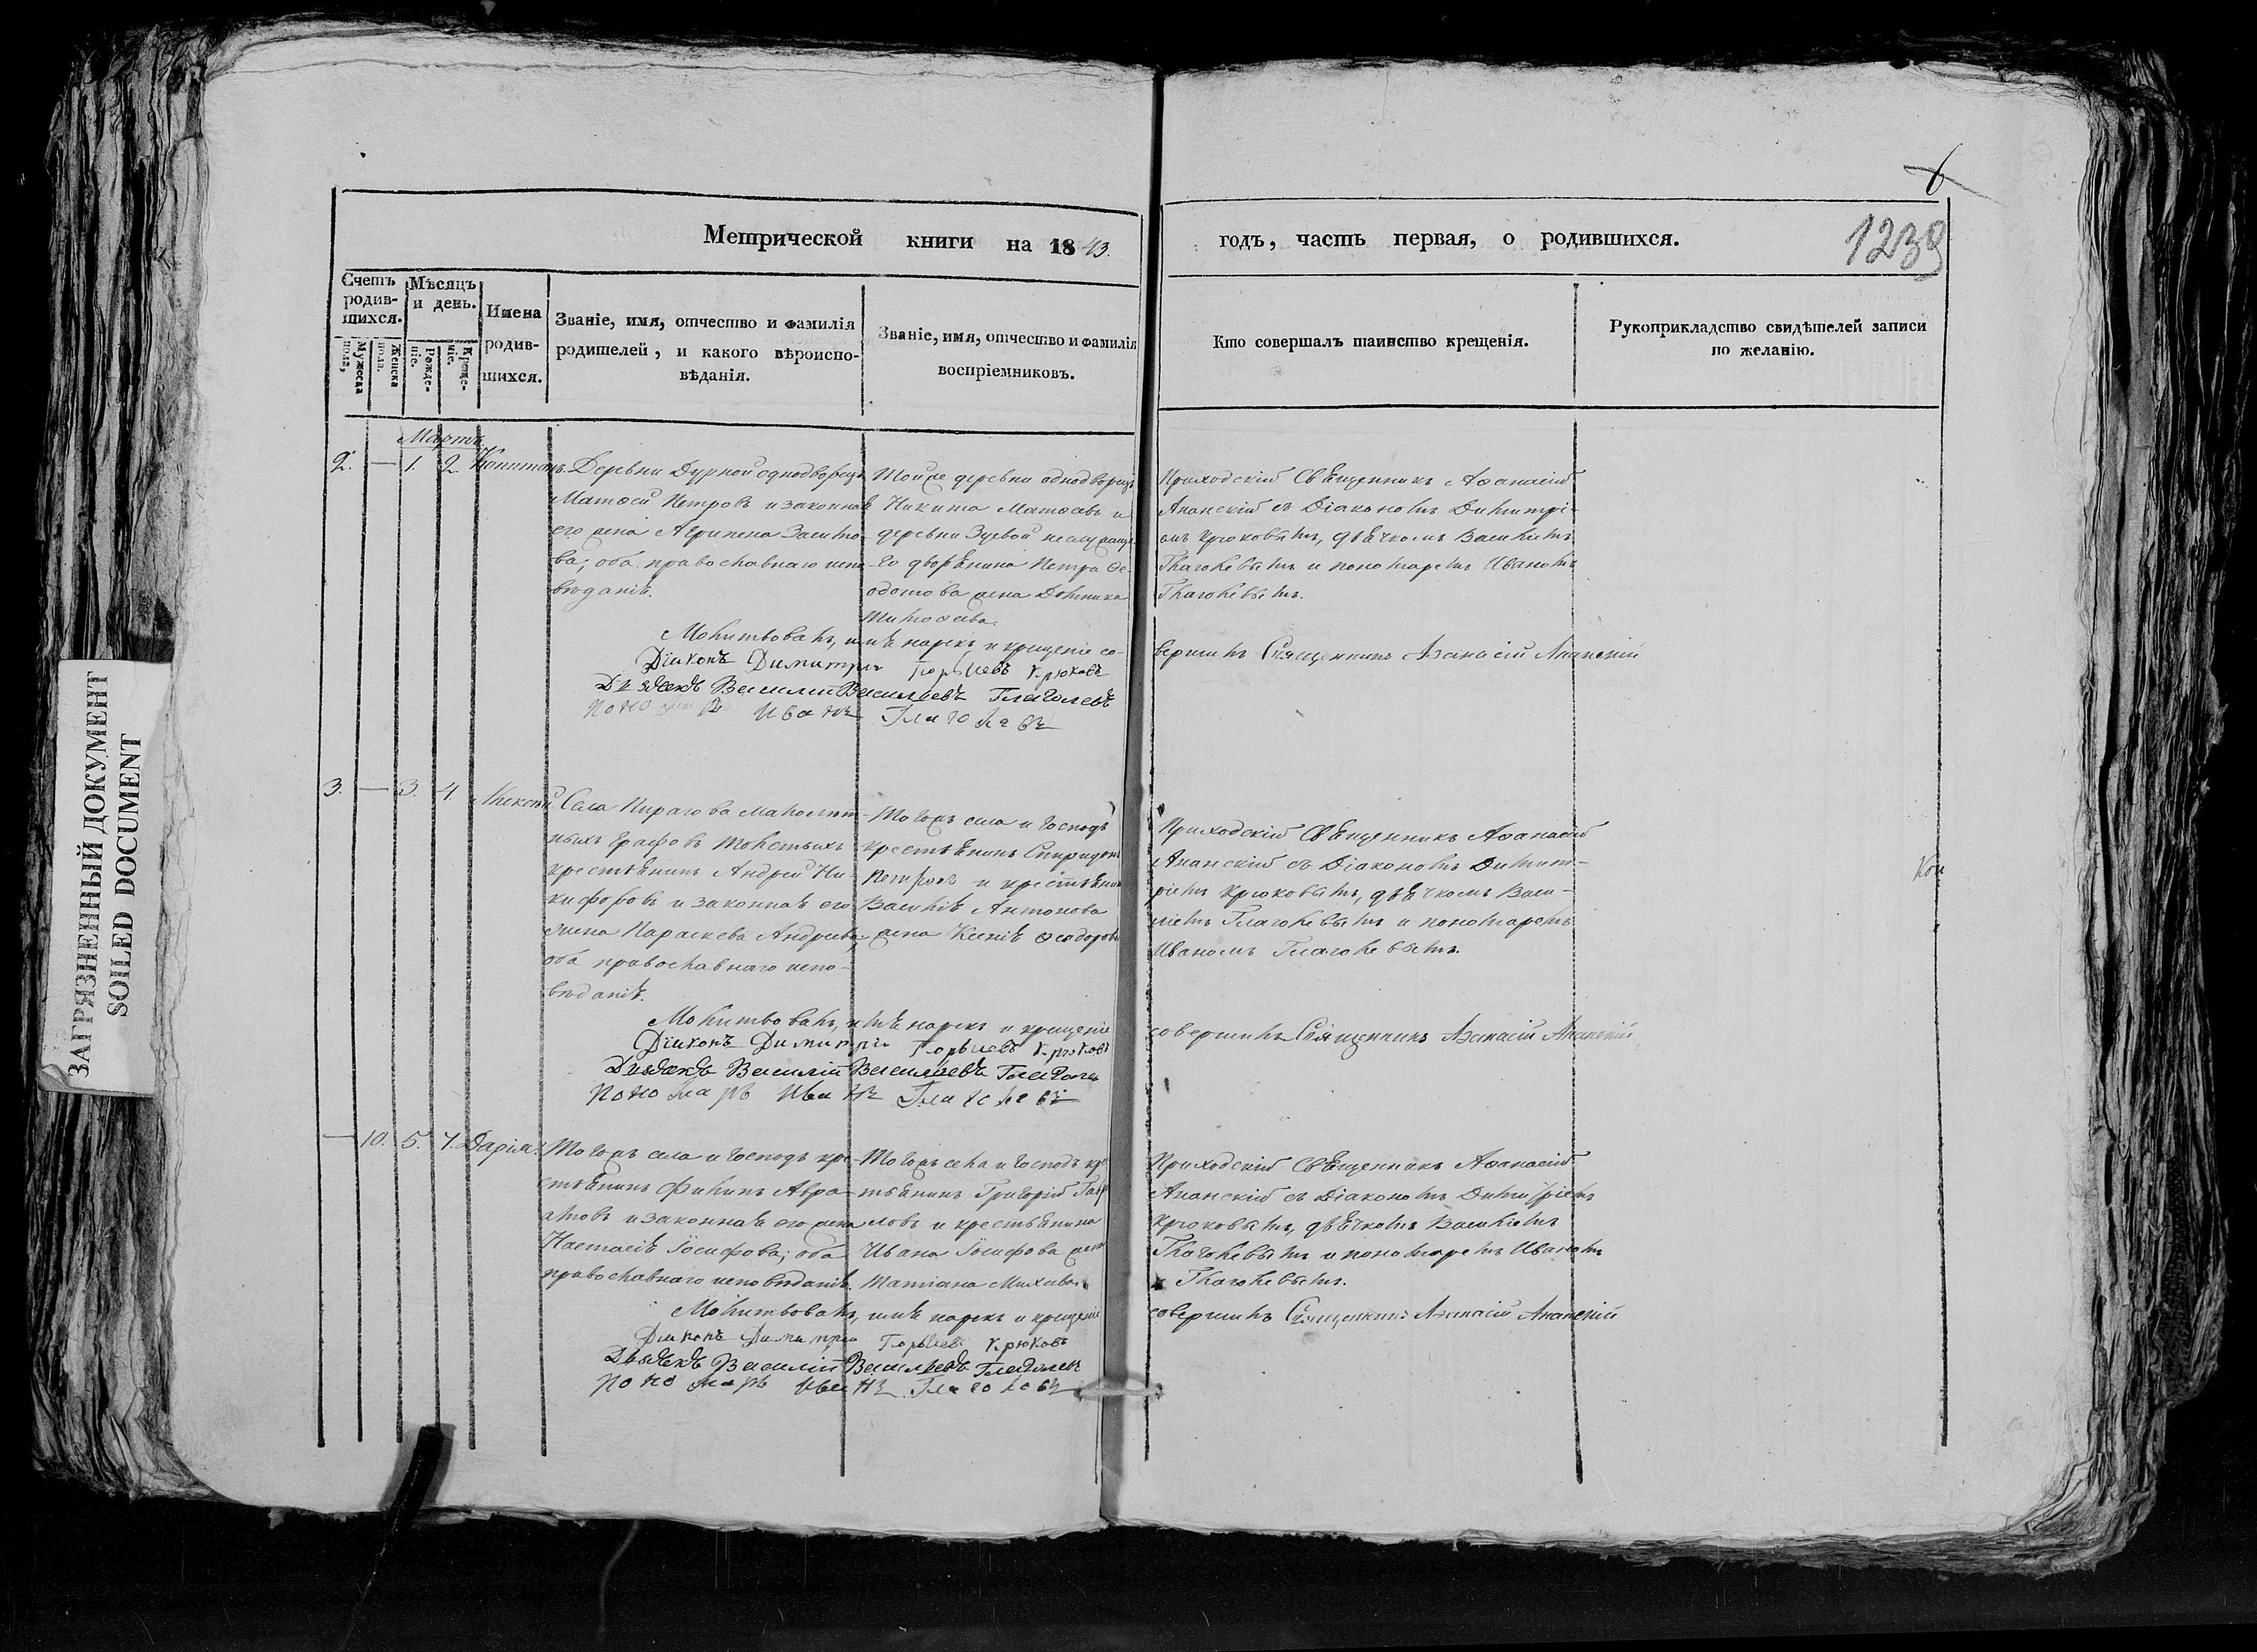 6
1239
Метрической книги на 1843.
годъ, часть первая, о родившихся.
Счетъ родив-шихся.
Мужеска пола,
Женска пола.
Мѣсяцъ и день.
Рожде-ніе.
Креще-ніе.
Имена родив-шихся.
Званіе, имя, отчество и фамилія
родителей, и какого вѣроиспо-
вѣданія.
Званіе, имя, отчество и фамилія
воспріемниковъ.
Кто совершалъ таинство крещенія.
Рукоприкладство свидѣтелей записи
по желанію.
Мартъ
2. — 1. 2. Капитонъ.
Деревни Дурной однодворецъ
Матѳей Петровъ и законнаѣ
его жена Агрипена
ва; оба православнаго испо-
вѣданіѣ.
Тойже деревни однодворецъ
Никита Матѳевъ и
деревни Зуевой неслужаща-
го дворѣнина Петра Ѳе-
дотова жена Домника
Тимоѳева.
Приходскій Свѣщенникъ Аѳанасій
Ананскій съ Діакономъ Димитрі-
емъ Крюковымъ, дѣѣчкомъ Василіемъ
Глаголевымъ и пономаремъ Иваномъ
Глаголевымъ.
Молитвовалъ, имѣ нарекъ и крещеніе со-
вершилъ Священникъ Аѳанасій Ананскій
Діаконъ Димитрій Крюковъ
Дьячекъ Василій Васильевъ Глаголевъ
Пономарь Иванъ Глаголевъ
3. — 3. 4. Алексѣй.
Села Пирагова малолѣт-
ныхъ Графовъ Толстыхъ
крестьѣнинъ Андрей Ни-
кифоровъ и законнаѣ его
жена Параскева Андреева,
оба православнаго испо-
вѣданіѣ.
Тогожъ села и господъ
крестьѣнинъ Спиридонъ
Петровъ и крестьѣнина
Василіѣ Антонова
жена Ксеніѣ Ѳеодорова
Приходскій Свѣщенникъ Аѳанасій
Ананскій съ Діакономъ Димит-
ріемъ Крюковымъ, дѣѣчкомъ Васи-
ліемъ Глаголевымъ и пономаремъ
Иваномъ Глаголевымъ.
Молитвовалъ, имѣ нарекъ и крещеніе
совершилъ Священникъ Аѳанасій Ананскій
Діаконъ Димитрій Крюковъ
Дьячекъ Василій Васильевъ Глаголе
Пономарь Иванъ Глаголевъ
— 10. 5. 7. Дарія.
Тогожъ села и господъ кре-
стьѣнинъ Филипъ Авра-
амовъ и законнаѣ его жена
Настасіѣ Іосифова; оба
православнаго исповѣданіѣ.
Тогожъ села и господъ кре
стьѣнинъ Григорій
ловъ и крестьѣнина
Ивана Іосифова жена
Татіана
Приходскій Свѣщенникъ Аѳанасій
Ананскій съ Діакономъ Димитріемъ
Крюковымъ, дѣѣчкомъ Василіемъ
Глаголевымъ и пономаремъ Иваномъ
Глаголевымъ.
Молитвовалъ, имѣ нарекъ и крещеніе
совершилъ Священникъ Аѳанасій Ананскій
Діаконъ Димитрій Крюковъ
Дьячекъ Василій Васильевъ Глаголев
Пономарь Иванъ Глаголевъ
ЗАГРЯЗНЕННЫЙ ДОКУМЕНТ
SOILED DOCUMENT